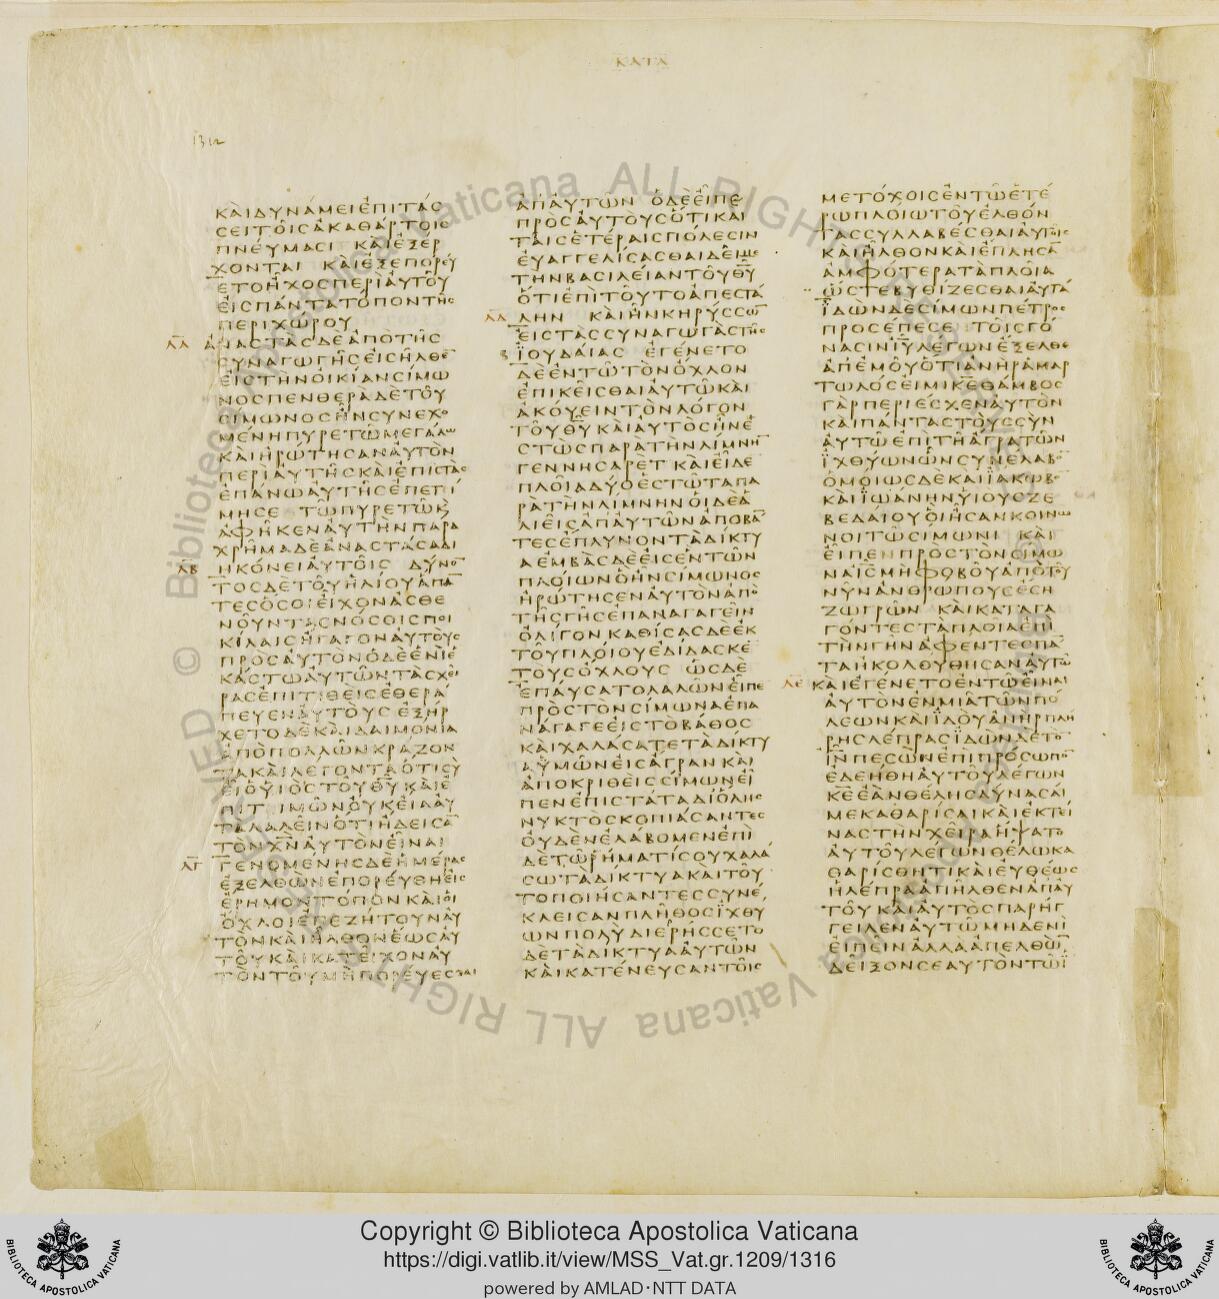 ΚΑΤΑ
1312
ΚΑΙΔΥΝΑΜΕΙΕΠΙΤΑΣ
ΣΕΙΤΟΙΣΑΚΑΘΑΡΤΟΙΣ
ΠΝΕΥΜΑΣΙ ΚΑΙΕΞΕΡ
ΧΟΝΤΑΙ ΚΑΙΕΞΕΠΟΡΕΥ
ΕΤΟΗΧΟΣΠΕΡΙΑΥΤΟΥ
ΕΙΣΠΑΝΤΑΤΟΠΟΝΤΗΣ
ΠΕΡΙΧΩΡΟΥ
ΛΑ ΑΝΑΣΤΑΣΔΕΑΠΟΤΗΣ
ΣΥΝΑΓΩΓΗΣΕΙΣΗΛΘΕ
ΕΙΣΤΗΝΟΙΚΙΑΝΣΙΜΩ
ΝΟΣΠΕΝΘΕΡΑΔΕΤΟΥ
ΣΙΜΩΝΟΣΗΝΣΥΝΕΧΟ
ΜΕΝΗΠΥΡΕΤΩΜΕΓΑΛΩ
ΚΑΙΗΡΩΤΗΣΑΝΑΥΤΟΝ
ΠΕΡΙΑΥΤΗΣΚΑΙΕΠΙΣΤΑΣ
ΕΠΑΝΩΑΥΤΗΣΕΠΕΤΙ
ΜΗΣΕ ΤΩΠΥΡΕΤΩΚ
ΑΦΗΚΕΝΑΥΤΗΝΠΑΡΑ
ΧΡΗΜΑΔΕΑΝΑΣΤΑΣΑΔΙ
ΛΒ ΗΚΟΝΕΙΑΥΤΟΙΣ ΔΥΝΟ
ΤΟΣΔΕΤΟΥΗΛΙΟΥΑΠΑ
ΤΕΣΟΣΟΙΕΙΧΟΝΑΣΘΕ
ΝΟΥΝΤΑΣΝΟΣΟΙΣΠΟΙ
ΚΙΛΑΙΣΗΓΑΓΟΝΑΥΤΟΥΣ
ΠΡΟΣΑΥΤΟΝΟΔΕΕΝΙΕ
ΚΑΣΤΩΑΥΤΩΝΤΑΣΧΕΙ
ΡΑΣΕΠΙΤΙΘΕΙΣΕΘΕΡΑ
ΠΕΥΕΝΑΥΤΟΥΣ ΕΞΗΡ
ΧΕΤΟΔΕΚΑΙΔΑΙΜΟΝΙΑ
ΑΠΟΠΟΛΛΩΝΚΡΑΖΟΝ
ΤΑΚΑΙΛΕΓΟΝΤΑΟΤΙΣΥ
ΕΙΟΥΙΟΣΤΟΥΘΥΚΑΙΕ
ΠΙΤΙΜΩΝΟΥΚΕΙΑΑΥ
ΤΑΛΑΛΕΙΝΟΤΙΗΔΕΙΣΑ
ΤΟΝΧΝΑΥΤΟΝΕΙΝΑΙ
ΛΓ ΓΕΝΟΜΕΝΗΣΔΕΗΜΕΡΑΣ
ΕΞΕΛΘΩΝΕΠΟΡΕΥΘΗΕΙΣ
ΕΡΗΜΟΝΤΟΠΟΝΚΑΙΟΙ
ΟΧΛΟΙΕΠΕΖΗΤΟΥΝΑΥ
ΤΟΝΚΑΙΗΛΘΟΝΕΩΣΑΥ
ΤΟΥΚΑΙΚΑΤΕΙΧΟΝΑΥ
ΤΟΝΤΟΥΜΗΠΟΡΕΥΕΣΘΑΙ
ΑΠΑΥΤΩΝ ΟΔΕΕΙΠΕ
ΠΡΟΣΑΥΤΟΥΣΟΤΙΚΑΙ
ΤΑΙΣΕΤΕΡΑΙΣΠΟΛΕΣΙΝ
ΕΥΑΓΓΕΛΙΣΑΣΘΑΙΔΕΙΜΕ
ΤΗΝΒΑΣΙΛΕΙΑΝΤΟΥΘΥ
ΟΤΙΕΠΙΤΟΥΤΟΑΠΕΣΤΑ
ΛΔ ΛΗΝ ΚΑΙΗΝΚΗΡΥΣΣΩ
ΕΙΣΤΑΣΣΥΝΑΓΩΓΑΣΤΗΣ
Β ΪΟΥΔΑΙΑΣ ΕΓΕΝΕΤΟ
ΔΕΕΝΤΩΤΟΝΟΧΛΟΝ
ΕΠΙΚΕΙΣΘΑΙΑΥΤΩΚΑΙ
ΑΚΟΥΕΙΝΤΟΝΛΟΓΟΝ
ΤΟΥΘΥΚΑΙΑΥΤΟΣΗΝΕ
ΣΤΩΣΠΑΡΑΤΗΝΛΙΜΝΗ
ΓΕΝΝΗΣΑΡΕΤ ΚΑΙΕΙΔΕ
ΠΛΟΙΑΔΥΟΕΣΤΩΤΑΠΑ
ΡΑΤΗΝΛΙΜΝΗΝΟΙΔΕΑ
ΛΙΕΙΣΑΠΑΥΤΩΝΑΠΟΒΑ
ΤΕΣΕΠΛΥΝΟΝΤΑΔΙΚΤΥ
ΑΕΜΒΑΣΔΕΕΙΣΕΝΤΩΝ
ΠΛΟΙΩΝΟΗΝΣΙΜΩΝΟΣ
ΗΡΩΤΗΣΕΝΑΥΤΟΝΑΠΟ
ΤΗΣΓΗΣΕΠΑΝΑΓΑΓΕΙΝ
ΟΛΙΓΟΝΚΑΘΙΣΑΣΔΕΕΚ
ΤΟΥΠΛΟΙΟΥΕΔΙΔΑΣΚΕ
ΤΟΥΣΟΧΛΟΥΣ ΩΣΔΕ
ΕΠΑΥΣΑΤΟΛΑΛΩΝΕΙΠΕ
ΠΡΟΣΤΟΝΣΙΜΩΝΑΕΠΑ
ΝΑΓΑΓΕΕΙΣΤΟΒΑΘΟΣ
ΚΑΙΧΑΛΑΣΑΤΕΤΑΔΙΚΤΥ
ΑΥΜΩΝΕΙΣΑΓΡΑΝΚΑΙ
ΑΠΟΚΡΙΘΕΙΣΣΙΜΩΝΕΙ
ΠΕΝΕΠΙΣΤΑΤΑΔΙΟΛΗΣ
ΝΥΚΤΟΣΚΟΠΙΑΣΑΝΤΕΣ
ΟΥΔΕΝΕΛΑΒΟΜΕΝΕΠΙ
ΔΕΤΩΡΗΜΑΤΙΣΟΥΧΑΛΑ
ΣΩΤΑΔΙΚΤΥΑΚΑΙΤΟΥ
ΤΟΠΟΙΗΣΑΝΤΕΣΣΥΝΕ
ΚΛΕΙΣΑΝΠΛΗΘΟΣΪΧΘΥ
ΩΝΠΟΛΥΔΙΕΡΗΣΣΕΤΟ
ΔΕΤΑΔΙΚΤΥΑΑΥΤΩΝ
ΚΑΙΚΑΤΕΝΕΥΣΑΝΤΟΙΣ
ΜΕΤΟΧΟΙΣΕΝΤΩΕΤΕ
ΡΩΠΛΟΙΩΤΟΥΕΛΘΟΝ
ΤΑΣΣΥΛΛΑΒΕΣΘΑΙΑΥΤΟΙΣ
ΚΑΙΗΛΘΟΝΚΑΙΕΠΛΗΣΑ
ΑΜΦΟΤΕΡΑΤΑΠΛΟΙΑ
ΩΣΤΕΒΥΘΙΖΕΣΘΑΙΑΥΤΑ
ΪΔΩΝΔΕΣΙΜΩΝΠΕΤΡΟΣ
ΠΡΟΣΕΠΕΣΕ ΤΟΙΣΓΟ
ΝΑΣΙΝΙΥΛΕΓΩΝΕΞΕΛΘΕ
ΑΠΕΜΟΥΟΤΙΑΝΗΡΑΜΑΡ
ΤΩΛΟΣΕΙΜΙΚΕΘΑΜΒΟΣ
ΓΑΡΠΕΡΙΕΣΧΕΝΑΥΤΟΝ
ΚΑΙΠΑΝΤΑΣΤΟΥΣΣΥΝ
ΑΥΤΩΕΠΙΤΗΑΓΡΑΤΩΝ
ΪΧΘΥΩΝΩΝΣΥΝΕΛΑΒΟ
ΟΜΟΙΩΣΔΕΚΑΙΙΑΚΩΒΟ
ΚΑΙΙΩΑΝΗΝΥΙΟΥΣΖΕ
ΒΕΔΑΙΟΥΟΙΗΣΑΝΚΟΙΝΩ
ΝΟΙΤΩΣΙΜΩΝΙ ΚΑΙ
ΕΙΠΕΝΠΡΟΣΤΟΝΣΙΜΩ
ΝΑΙΣΜΗΦΟΒΟΥΑΠΟΤΟΥ
ΝΥΝΑΝΘΡΩΠΟΥΣΕΣΗ
ΖΩΓΡΩΝ ΚΑΙΚΑΤΑΓΑ
ΓΟΝΤΕΣΤΑΠΛΟΙΑΕΠΙ
ΤΗΝΓΗΝΑΦΕΝΤΕΣΠΑ
ΤΑΗΚΟΛΟΥΘΗΣΑΝΑΥΤΩ
ΛΕ ΚΑΙΕΓΕΝΕΤΟΕΝΤΩΕΙΝΑΙ
ΑΥΤΟΝΕΝΜΙΑΤΩΝΠΟ
ΛΕΩΝΚΑΙΪΔΟΥΑΝΗΡΠΛΗ
ΡΗΣΛΕΠΡΑΣΙΔΩΝΔΕΤΟ
ΙΝΠΕΣΩΝΕΠΙΠΡΟΣΩΠΟ
ΕΔΕΗΘΗΑΥΤΟΥΛΕΓΩΝ
ΚΕΕΑΝΘΕΛΗΣΔΥΝΑΣΑΙ
ΜΕΚΑΘΑΡΙΣΑΙΚΑΙΕΚΤΕΙ
ΝΑΣΤΗΝΧΕΙΡΑΗΨΑΤΟ
ΑΥΤΟΥΛΕΓΩΝΘΕΛΩΚΑ
ΘΑΡΙΣΘΗΤΙΚΑΙΕΥΘΕΩΣ
ΗΛΕΠΡΑΑΠΗΛΘΕΝΑΠΑΥ
ΤΟΥ ΚΑΙΑΥΤΟΣΠΑΡΗΓ
ΓΕΙΛΕΝΑΥΤΩΜΗΔΕΝΙ
ΕΙΠΕΙΝΑΛΛΑΑΠΕΛΘΩ
ΔΕΙΞΟΝΣΕΑΥΤΟΝΤΩΪ
© Biblioteca Apostolica Vaticana ALL RIGHTS RESERVED
Copyright © Biblioteca Apostolica Vaticana
https://digi.vatlib.it/view/MSS_Vat.gr.1209/1316
powered by AMLAD·NTT DATA
BIBLIOTECA APOSTOLICA VATICANA
BIBLIOTECA APOSTOLICA VATICANA